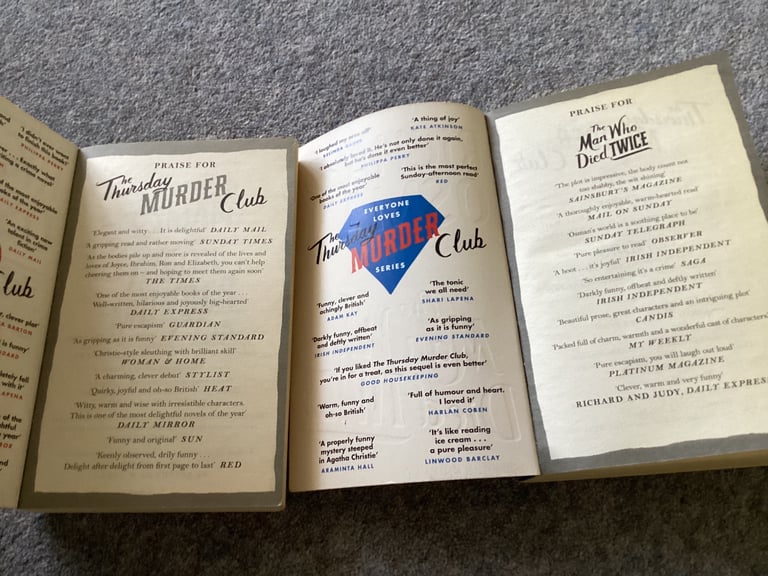 'I didn't
to finish
PHILIPPA PERRY
Exactly what
a crime novel'
DAILY EXPRESS
An exciting new
talent in crime
fiction'
DAILY MAIL
Club
PRAISE FOR
The
Thursday
MURDER
Club
'Elegant and witty . . . It is delightful' DAILY MAIL
'A gripping read and rather moving' SUNDAY TIMES
'As the bodies pile up and more is revealed of the lives and
loves of Joyce, Ibrahim, Ron and Elizabeth, you can't help
cheering them on – and hoping to meet them again soon'
THE TIMES
'One of the most enjoyable books of the year . . .
Well-written, hilarious and joyously big-hearted'
DAILY EXPRESS
'Pure escapism' GUARDIAN
'As gripping as it is funny' EVENING STANDARD
'Christie-style sleuthing with brilliant skill'
WOMAN & HOME
'A charming, clever debut' STYLIST
'Quirky, joyful and oh-so British' HEAT
'Witty, warm and wise with irresistible characters.
This is one of the most delightful novels of the year'
DAILY MIRROR
'Funny and original' SUN
'Keenly observed, drily funny . . .
Delight after delight from first page to last' RED
'I laughed my arse off'
BELINDA BAUER
'A thing of joy'
KATE ATKINSON
'I absolutely loved it. He's not only done it again,
but he's done it even better'
PHILIPPA PERRY
'One of the most enjoyable
books of the year'
DAILY EXPRESS
'This is the most perfect
Sunday-afternoon read'
RED
EVERYONE
LOVES
The
Thursday
MURDER
Club
SERIES
'Funny, clever and
achingly British'
ADAM KAY
'The tonic
we all need'
SHARI LAPENA
'Darkly funny, offbeat
and deftly written'
IRISH INDEPENDENT
'As gripping
as it is funny'
EVENING STANDARD
'If you liked The Thursday Murder Club,
you're in for a treat, as this sequel is even better'
GOOD HOUSEKEEPING
'Warm, funny and
oh-so British'
'Full of humour and heart.
I loved it'
HARLAN COBEN
'A properly funny
mystery steeped
in Agatha Christie'
ARAMINTA HALL
'It's like reading
ice cream . . .
a pure pleasure'
LINWOOD BARCLAY
PRAISE FOR
The
Man Who
Died TWICE
'The plot is impressive, the body count not
too shabby, the wit shining'
SAINSBURY'S MAGAZINE
'A thoroughly enjoyable, warm-hearted read'
MAIL ON SUNDAY
'Osman's world is a soothing place to be'
SUNDAY TELEGRAPH
'Pure pleasure to read' OBSERVER
'A hoot . . . it's joyful' IRISH INDEPENDENT
'So entertaining it's a crime' SAGA
'Darkly funny, offbeat and deftly written'
IRISH INDEPENDENT
'Beautiful prose, great characters and an intriguing plot'
CANDIS
'Packed full of charm, warmth and a wonderful cast of characters'
MY WEEKLY
'Pure escapism, you will laugh out loud'
PLATINUM MAGAZINE
'Clever, warm and very funny'
RICHARD AND JUDY, DAILY EXPRESS